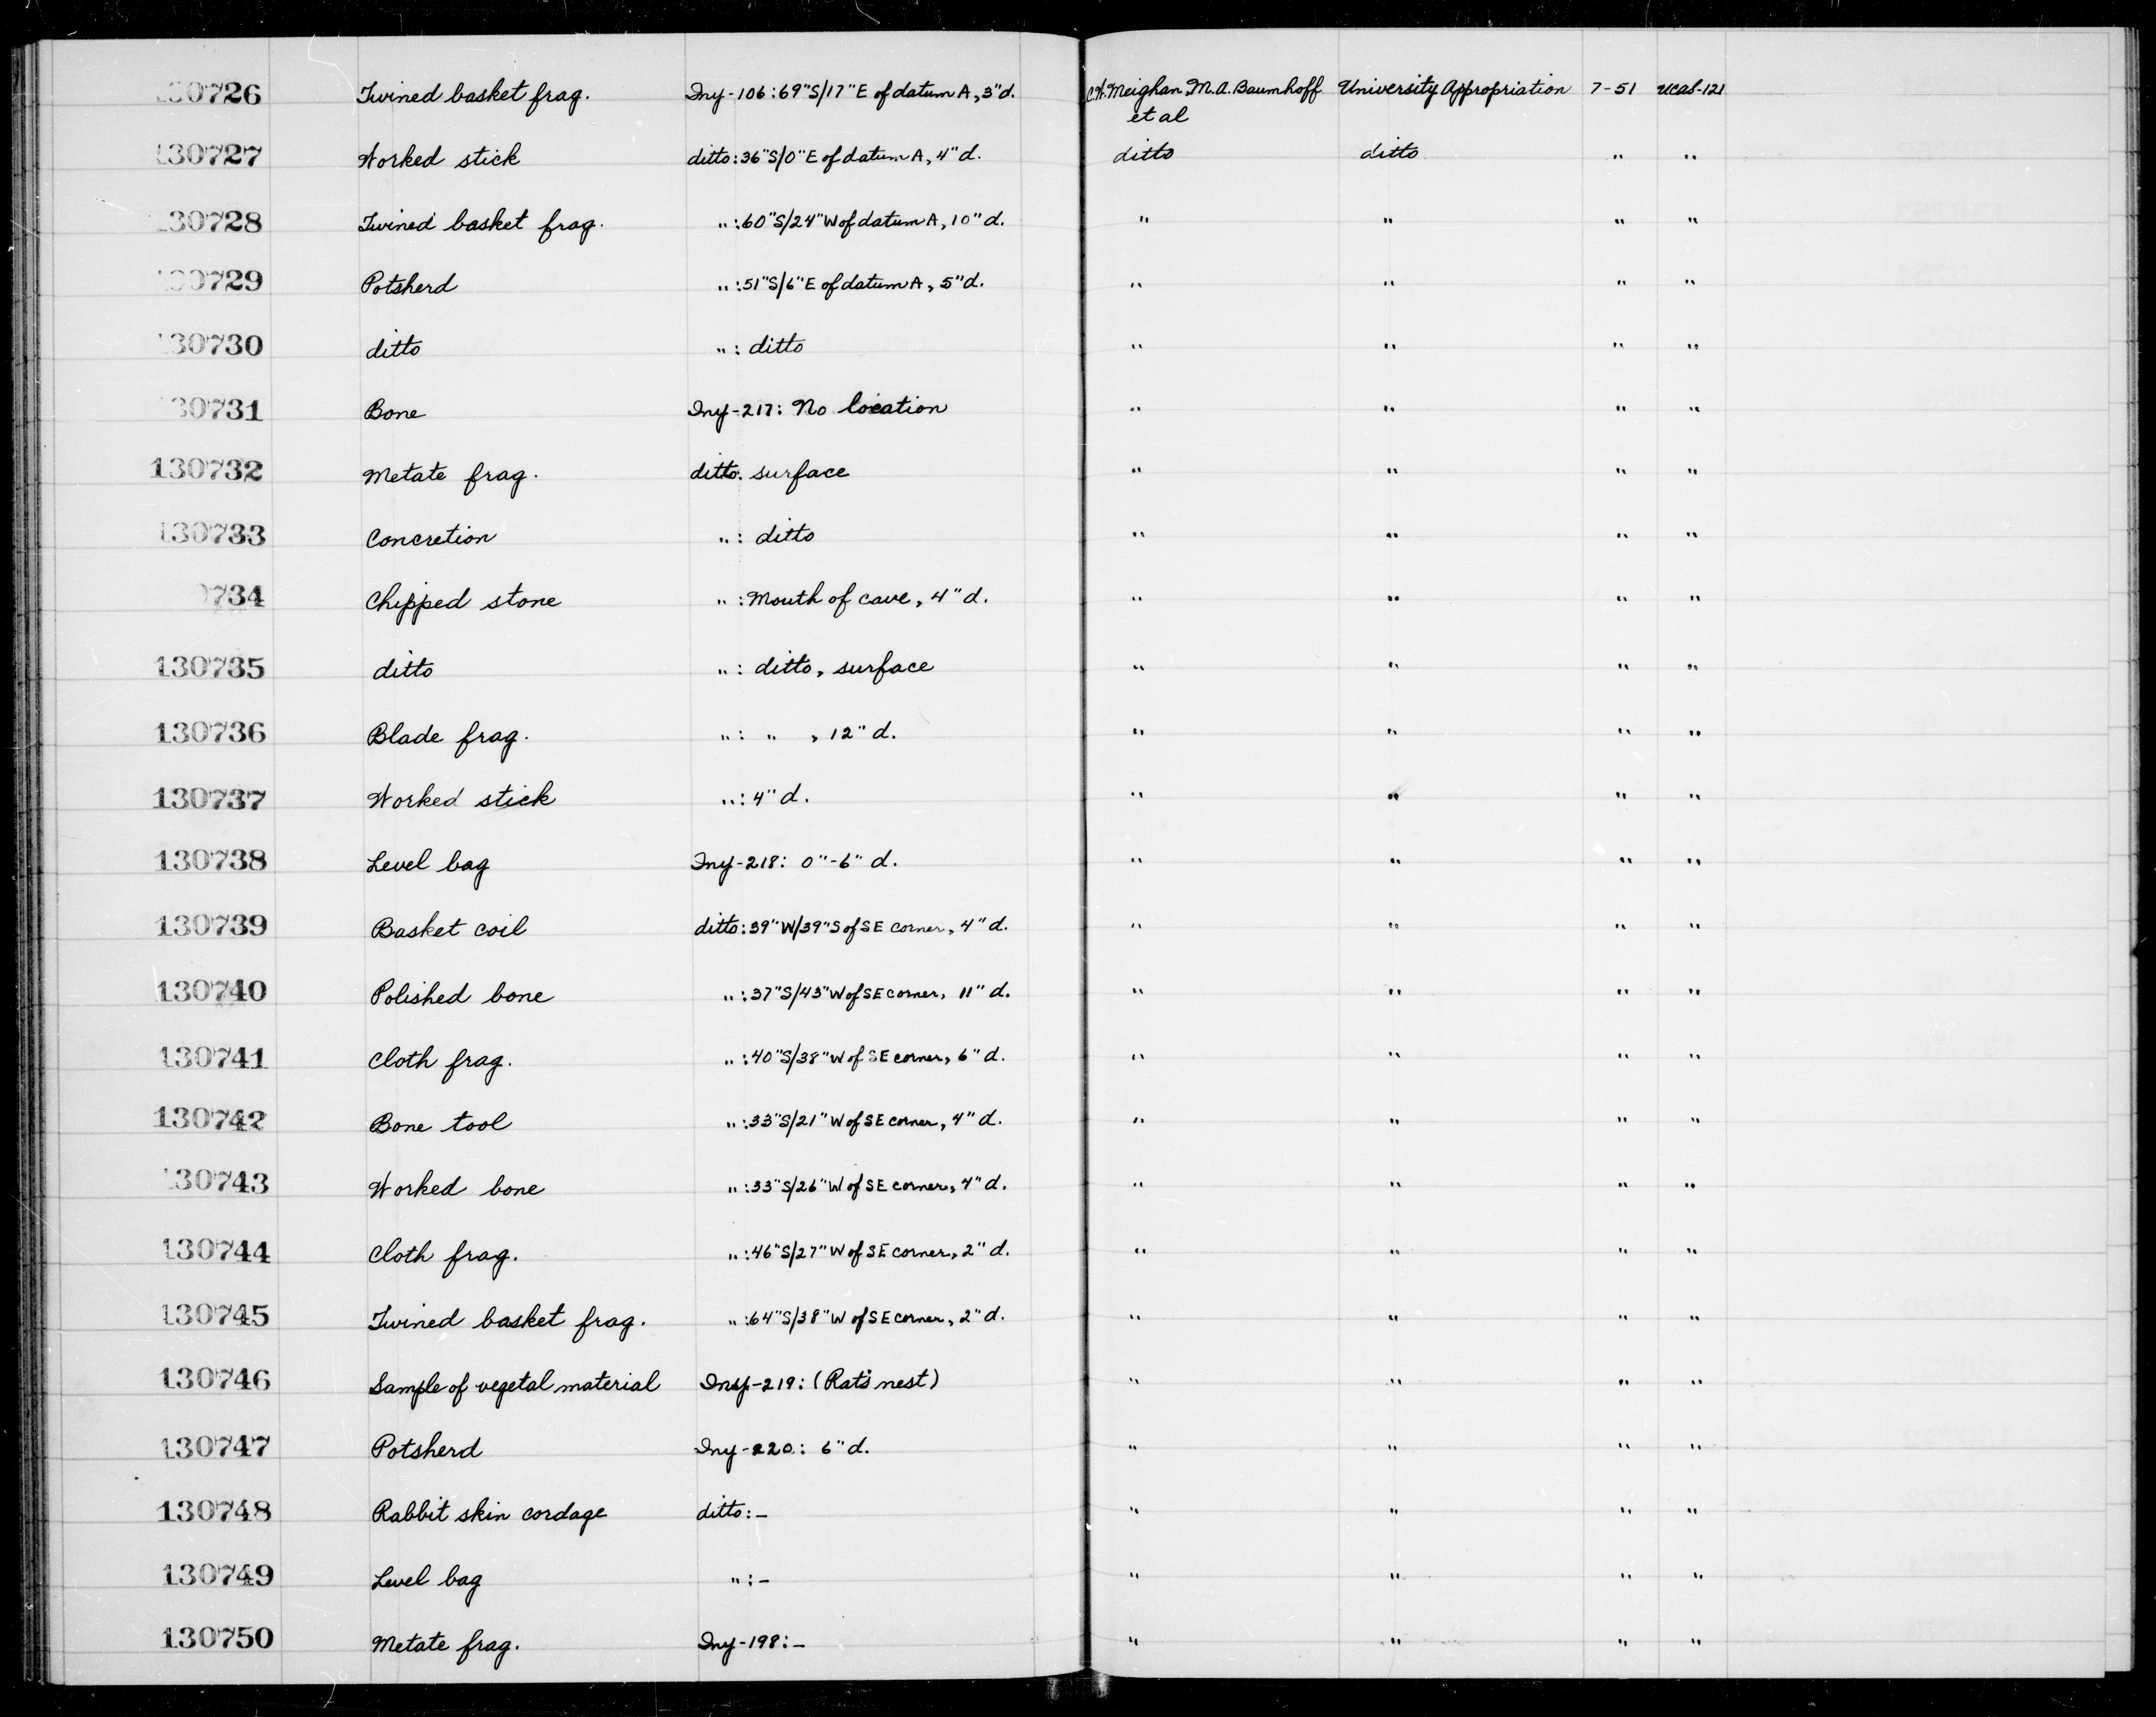 130726 Twined basket frag. Iny-106:69"S/17"E of datum A, 3"d. C.W. Meighan, M.A. Baumhoff University Appropriation 7-51 UCAS-121
et al
130727 Worked stick ditto:36"S/0"E of datum A, 4"d. ditto ditto " "
130728 Twined basket frag. ":60"S/24"W of datum A, 10"d. " " " "
130729 Potsherd ":51"S/6"E of datum A, 5"d. " " " "
130730 ditto ": ditto " " " "
130731 Bone Iny-217: No location " " " "
130732 Metate frag. ditto: surface " " " "
130733 Concretion ": ditto " " " "
734 Chipped stone ": Mouth of cave, 4"d. " " " "
130735 ditto ": ditto, surface " " " "
130736 Blade frag. ": " , 12"d. " " " "
130737 Worked stick ": 4"d. " " " "
130738 Level bag Iny-218: 0"-6" d. " " " "
130739 Basket coil ditto:39"W/39"S of SE corner, 4"d. " " " "
130740 Polished bone ":37"S/43"W of SE corner, 11"d. " " " "
130741 Cloth frag. ":40"S/38"W of SE corner, 6"d. " " " "
130742 Bone tool ":33"S/21"W of SE corner, 4"d. " " " "
130743 Worked bone ":33"S/26"W of SE corner, 4"d. " " " "
130744 Cloth frag. ":46"S/27"W of SE corner, 2"d. " " " "
130745 Twined basket frag. ":64"S/38"W of SE corner, 2"d. " " " "
130746 Sample of vegetal material Iny-219: (Rat's nest) " " " "
130747 Potsherd Iny-220: 6"d. " " " "
130748 Rabbit skin cordage ditto:– " " " "
130749 Level bag ":– " " " "
130750 Metate frag. Iny-198:– " " " "